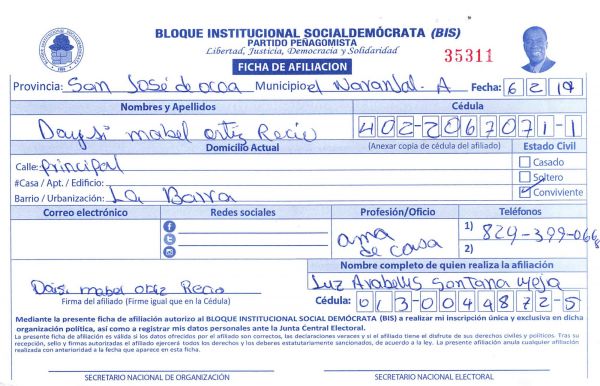 BLOQUE INSTITUCIONAL SOCIALDEMÓCRATA (BIS)
PARTIDO PEÑAGOMISTA
Libertad, Justicia, Democracia y Solidaridad
35311
FICHA DE AFILIACION
Provincia: San José de ocoa Municipio: el Naranjal. A Fecha: 6 2 19
Nombres y Apellidos Cédula
Daysi mabel ortiz Recio 402-2067071-1
Domicilio Actual (Anexar copia de cédula del afiliado) Estado Civil
Calle: principal Casado
#Casa / Apt. / Edificio: Soltero
Barrio / Urbanización: La Barra Conviviente
Correo electrónico Redes sociales Profesión/Oficio Teléfonos
ama de casa 1) 829-399-0668
2)
Nombre completo de quien realiza la afiliación
Daisi mabel ortiz Recio Luz Arabellis Santana mejia
Firma del afiliado (Firme igual que en la Cédula) Cédula: 013-0044872-5
Mediante la presente ficha de afiliación autorizo al BLOQUE INSTITUCIONAL SOCIAL DEMÓCRATA (BIS) a realizar mi inscripción única y exclusiva en dicha
organización política, así como a registrar mis datos personales ante la Junta Central Electoral.
La presente ficha de afiliación es válida si los datos ofrecidos por el afiliado son correctos, las declaraciones veraces y si el afiliado tiene el disfrute de sus derechos civiles y políticos. Tras su
recepción, sello y firmas autorizadas el afiliado ejercerá todos los derechos y los deberes estatutariamente sancionados, de acuerdo a la ley. La presente afiliación anula cualquier afiliación
realizada con anterioridad a la fecha que aparece en esta ficha.
SECRETARIO NACIONAL DE ORGANIZACIÓN SECRETARIO NACIONAL ELECTORAL